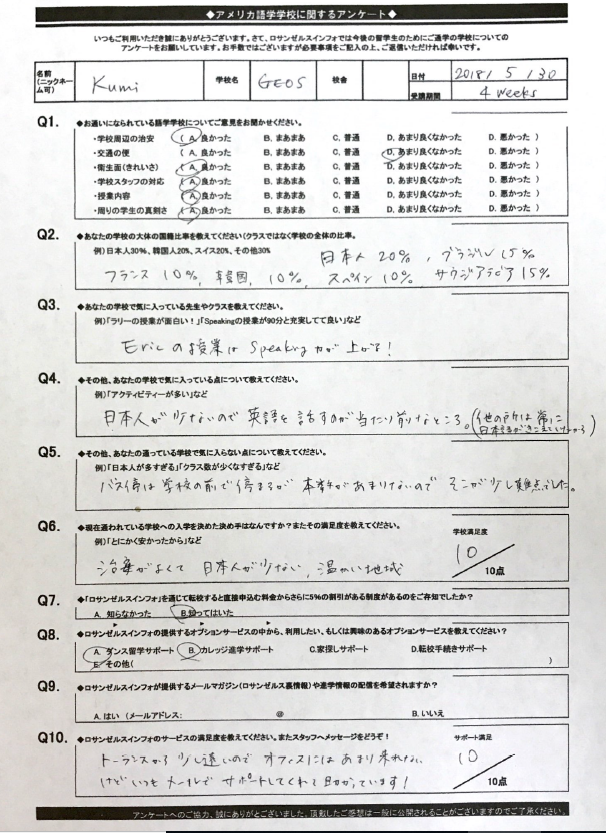 ◆アメリカ語学学校に関するアンケート◆
いつもご利用いただき誠にありがとうございます。さて、ロサンゼルスインフォでは今後の留学生のためにご通学の学校についての
アンケートをお願いしています。お手数ではございますが必要事項をご記入の上、ご返信いただければ幸いです。
名前(ニックネーム可) Kumi 学校名 GEOS 校舎 日付 2018 / 5 / 30
受講期間 4 weeks
Q1. ◆お通いになられている語学学校についてご意見をお聞かせください。
・学校周辺の治安 ( A. 良かった B. まあまあ C. 普通 D. あまり良くなかった D. 悪かった )
・交通の便 ( A. 良かった B. まあまあ C. 普通 D. あまり良くなかった D. 悪かった )
・衛生面(きれいさ) ( A. 良かった B. まあまあ C. 普通 D. あまり良くなかった D. 悪かった )
・学校スタッフの対応 ( A. 良かった B. まあまあ C. 普通 D. あまり良くなかった D. 悪かった )
・授業内容 ( A. 良かった B. まあまあ C. 普通 D. あまり良くなかった D. 悪かった )
・周りの学生の真剣さ ( A. 良かった B. まあまあ C. 普通 D. あまり良くなかった D. 悪かった )
Q2. ◆あなたの学校の大体の国籍比率を教えてください(クラスではなく学校の全体の比率。
例)日本人30%、韓国人20%、スイス20%、その他30%
日本人 20% , ブラジル 15%
フランス 10%, 韓国, 10%, スペイン 10% サウジアラビア 15%
Q3. ◆あなたの学校で気に入っている先生やクラスを教えてください。
例)「ラリーの授業が面白い!」「Speakingの授業が90分と充実してて良い」など
Eric の授業は Speaking 力が上がる!
Q4. ◆その他、あなたの学校で気に入っている点について教えてください。
例)「アクティビティーが多い」など
日本人が少ないので 英語を話すのが当たり前なところ。(他の所は常に
日本語がきこえていたから)
Q5. ◆その他、あなたの通っている学校で気に入らない点について教えてください。
例)「日本人が多すぎる」「クラス数が少なすぎる」など
バス停は学校の前で停まるが 本数があまりないので そこが少し難点でした。
Q6. ◆現在通われている学校への入学を決めた決め手はなんですか?またその満足度を教えてください。
例)「とにかく安かったから」など
学校満足度
10
10点
治安がよくて 日本人が少ない, 温かい地域
Q7. ◆「ロサンゼルスインフォ」を通じて転校すると直接申込む料金からさらに5%の割引がある制度があるのをご存知でしたか?
A. 知らなかった B.知ってはいた
Q8. ◆ロサンゼルスインフォの提供するオプションサービスの中から、利用したい、もしくは興味のあるオプションサービスを教えてください?
A. ダンス留学サポート B. カレッジ進学サポート C.家探しサポート D.転校手続きサポート
E. その他( )
Q9. ◆ロサンゼルスインフォが提供するメールマガジン(ロサンゼルス裏情報)や進学情報の配信を希望されますか?
A. はい (メールアドレス: @ B. いいえ
Q10. ◆ロサンゼルスインフォのサービスの満足度を教えてください。またスタッフへメッセージをどうぞ!
サポート満足
10
10点
トーランスから 少し遠いので オフィスには あまり来れない
けど いつも メールで サポートしてくれて 助かっています!
アンケートへのご協力、誠にありがとございました。頂戴したご感想は一般に公開されることがございますのでご了承ください。